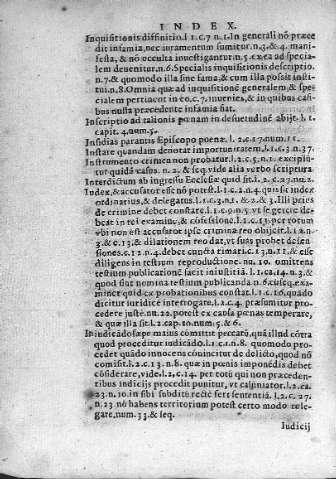 INDEX.
Inquisitionis diffinitio.l 1.c.7 n.1.In generali nō præce
dit infamia,nec iuramentum sumitur.n.3.& 4. mani-
festa,& nō occulta inuestigantur.n.5.ex ea ad specia-
lem deuenitur.n.6.Specialis inquisitionis descriptio.
n.7.& quomodo illa sine fama,& cum illa possit insti-
tui.n.8.Omnia quæ ad inquisitionē generalem,& spe
cialem pertinent in eo.c.7.inuenies,& in quibus casi-
bus nulla præcedente infamia fiat.
Inscriptio ad talionis pœnam in desuetudinē abijt.l.1.
capit.4.num.5.
Insidias parantis Episcopo poenæ.l.2.c.17.num.11.
Instare quandam denotat importunitatem.l.1.c.3 n.37.
Instrumento crimen non probatur.l.2.c.5.n.1. excipiū-
tur quidā casus. n.2. & seq.vide alia verbo scriptura
Interdictum ab ingressu Ecclesiæ quid sit.l.2.c.27.nu.2.
Index,& accusator esse nō potest.l.1.c.2.n.4.quis sit index
ordinarius,& delegatus.l.1.c.3.n1. & 2.& 3. Illi prius
de crimine debet constare.l.1.c.9.n.5 vt se gerere de-
beat in rei examine,& confessione.l.1.c.1 per totum
vbi non est accusator ipse crimina reo objicet.l.1.c.12
3.& c.13,& dilationem reo dat,vt suas probet defen-
siones.c.12.n.4.debet cuncta rimari.c.13 n.11.& esse
diligens in testium reproductione. nu.10. omittens
testium publicationē facit iniustitiā.l.1.ca.14.n.3.&
quod fiut nemina testium publicanda n.6.cuiusq.exa-
minet quid ex probationibus constat.l.1.c.16.quādo
dicitur iuridicè interrogare.l.2.c.4. præsumitur pro-
cedere iustè.nu.22.potest ex causa pœnas temperare,
& quæ illa sit.l.2.cap.10.num.5.& 6.
In iudicādo sæpe maius comittit peccatū,quā illud cōtra
quod proceditur iudicādo.l.1.c.1.n.8. quomodo pro-
cedet quādo innocens couincitur de delicto,quod nō
comisit.l.2.c.13.n.8. quæ in pœnis imponēdis debet
cōsiderare,vide.l.2.c.14. per totū qui non præceden-
tibus indicijs procedit punitur, vt calūniator.l.2.ca.
23.n.10.in sibi subditū rectè fert sententiā.l.2.c. 27.
n.23 nō habens territorium potest certo modo rele-
gare,num.33.& seq.
Iudicij